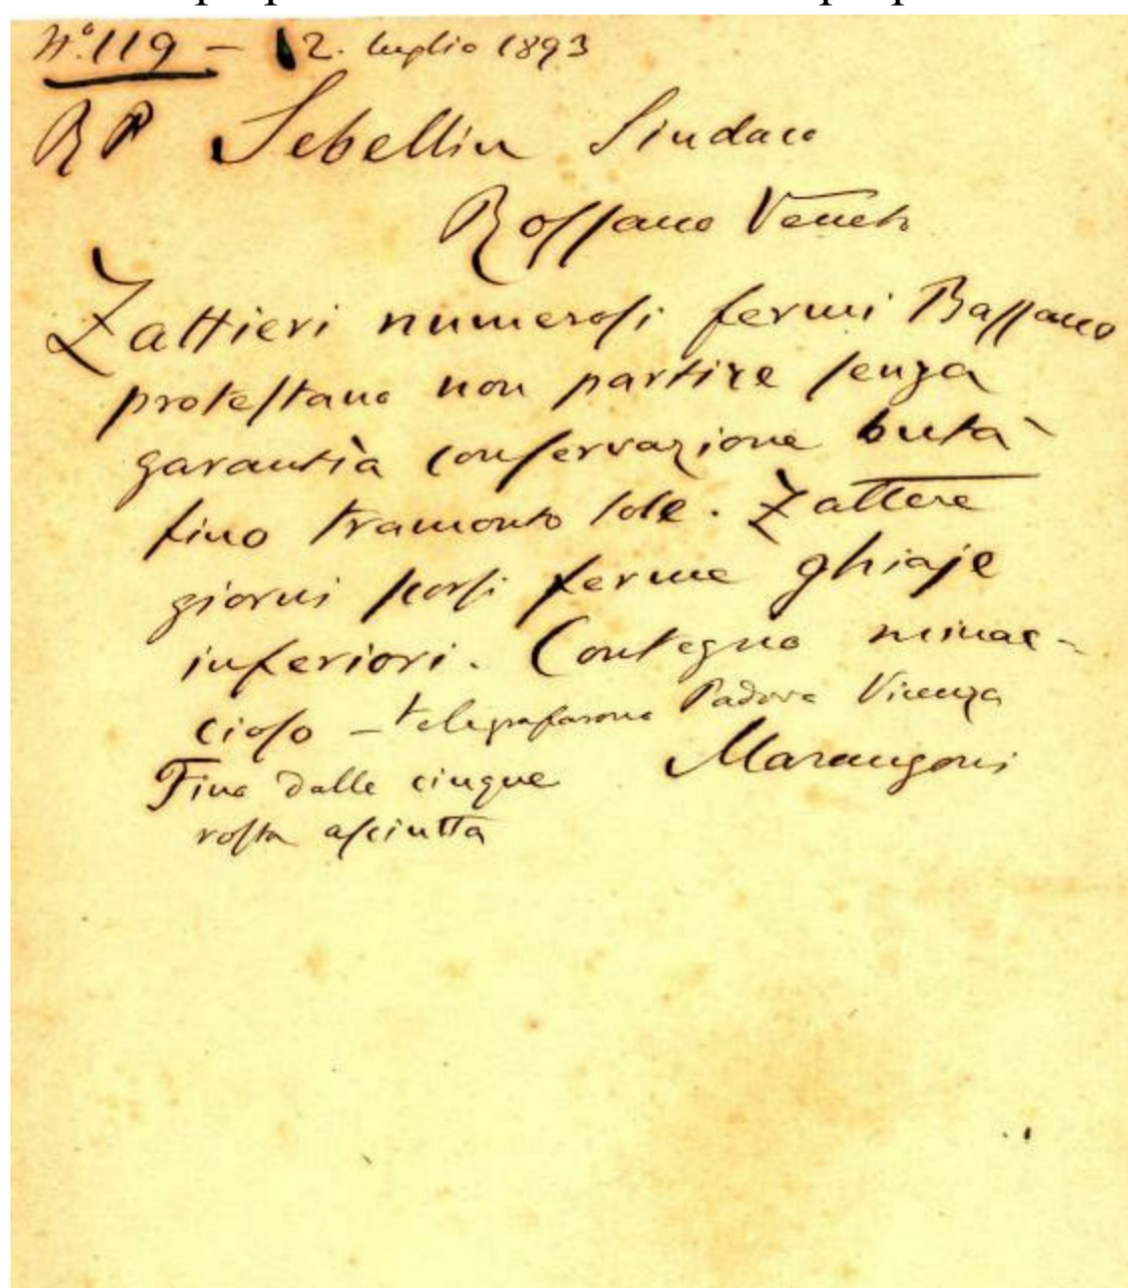 N.º 119 – 2. luglio 1893
RP Sebellin Sindaco
Rossano Veneto
Zattieri numerosi fermi Bassano
protestano non partire senza
garantìa conservazione butà
fino tramonto sole. Zattere
giorni scorsi ferme ghiaje
inferiori. Contegno minac-
cioso – telegrafarono Padova Vicenza
Marangoni
Fino dalle cinque
rosta asciutta